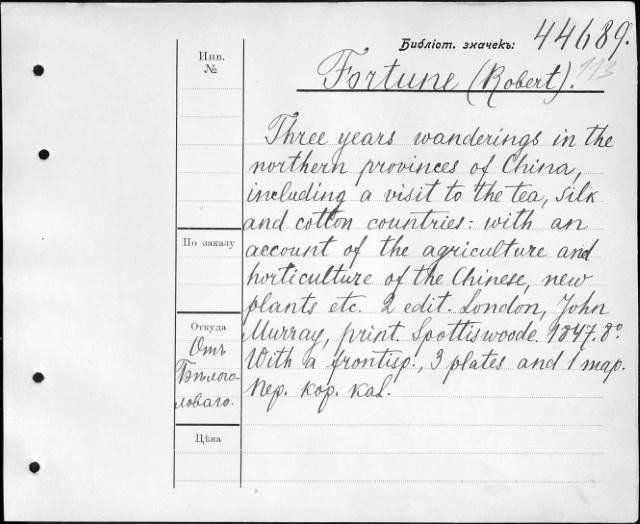 Библіот. значекъ: 44689.
113
Инв.
№
Fortune (Robert).
Three years wanderings in the
northern provinces of China,
including a visit to the tea, silk
and cotton countries: with an
account of the agriculture and
horticulture of the Chinese, new
plants etc. 2 edit. London, John
Murray, print. Spottiswoode. 1847. 8º.
With a frontisp., 3 plates and 1 map.
Пер. кор. кал.
По заказу
Откуда
Отъ
Бѣлого-
ловаго.
Цѣна